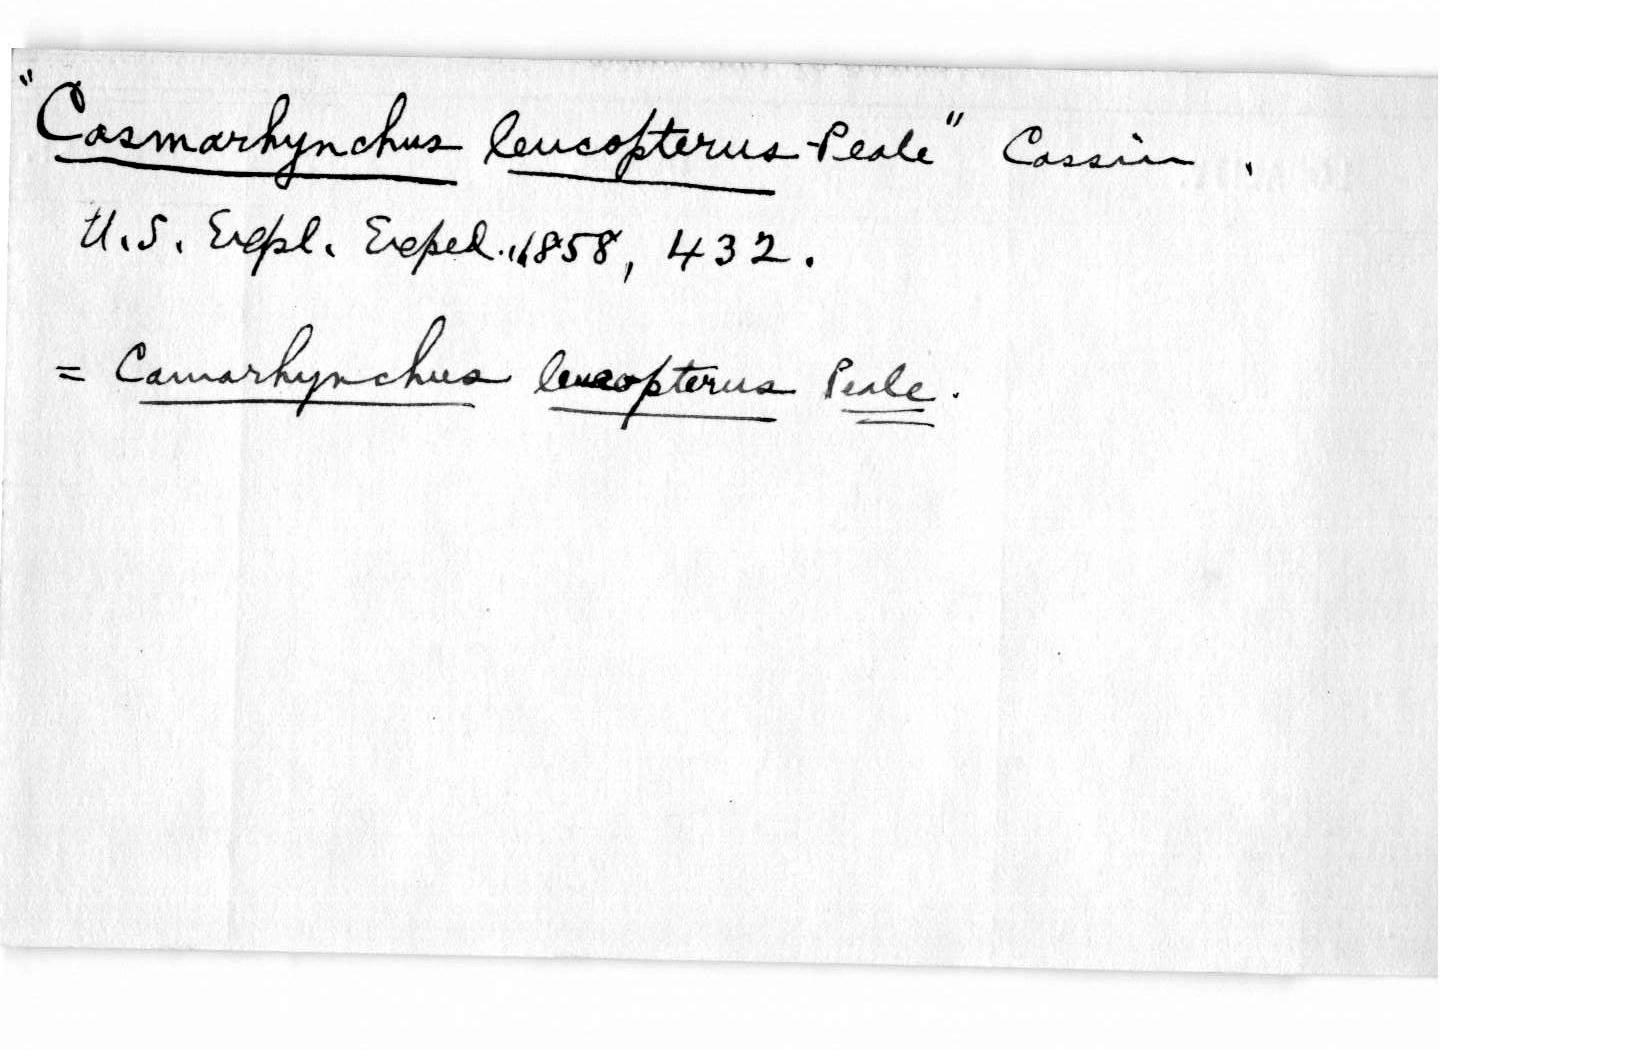 "Casmarhynchus leucopterus Peale" Cassin,
U.S. Expl. Exped., 1858, 432.
= Camarhynchus leucopterus Peale.